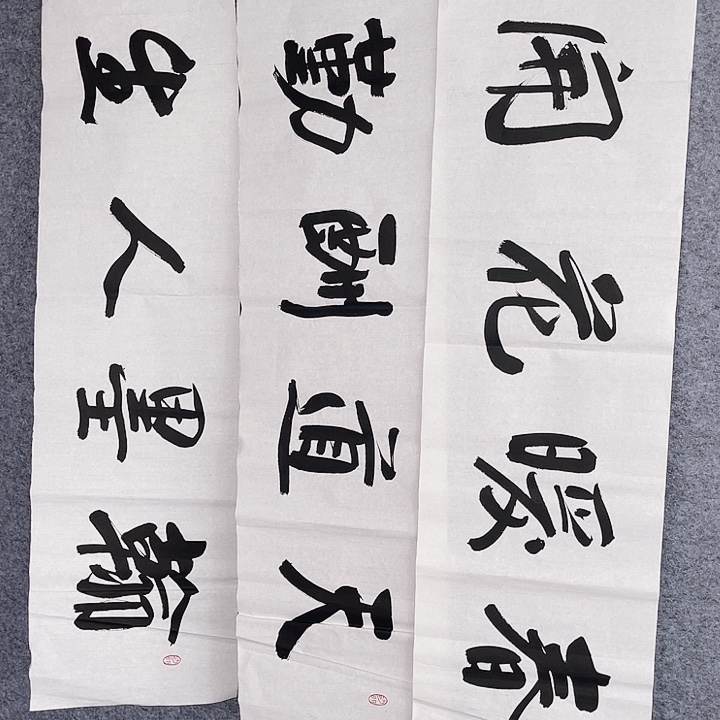 春暖花開
天道酬勤
翰墨人生